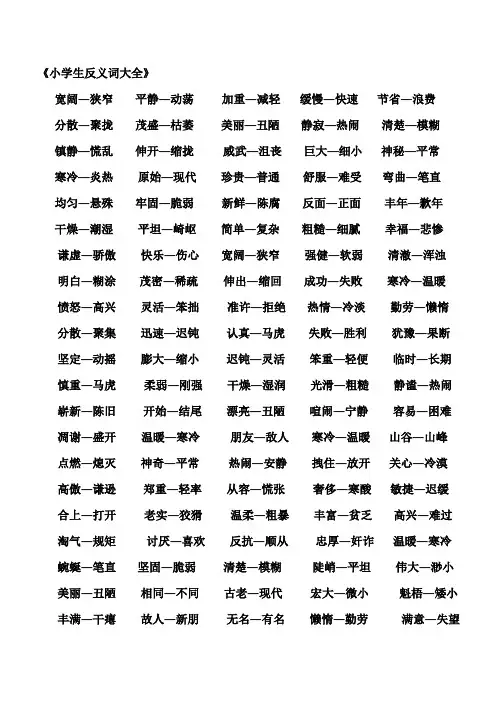 《小学生反义词大全》
宽阔—狭窄 平静—动荡 加重—减轻 缓慢—快速 节省—浪费
分散—聚拢 茂盛—枯萎 美丽—丑陋 静寂—热闹 清楚—模糊
镇静—慌乱 伸开—缩拢 威武—沮丧 巨大—细小 神秘—平常
寒冷—炎热 原始—现代 珍贵—普通 舒服—难受 弯曲—笔直
均匀—悬殊 牢固—脆弱 新鲜—陈腐 反面—正面 丰年—歉年
干燥—潮湿 平坦—崎岖 简单—复杂 粗糙—细腻 幸福—悲惨
谦虚—骄傲 快乐—伤心 宽阔—狭窄 强健—软弱 清澈—浑浊
明白—糊涂 茂密—稀疏 伸出—缩回 成功—失败 寒冷—温暖
愤怒—高兴 灵活—笨拙 准许—拒绝 热情—冷淡 勤劳—懒惰
分散—聚集 迅速—迟钝 认真—马虎 失败—胜利 犹豫—果断
坚定—动摇 膨大—缩小 迟钝—灵活 笨重—轻便 临时—长期
慎重—马虎 柔弱—刚强 干燥—湿润 光滑—粗糙 静谧—热闹
崭新—陈旧 开始—结尾 漂亮—丑陋 喧闹—宁静 容易—困难
凋谢—盛开 温暖—寒冷 朋友—敌人 寒冷—温暖 山谷—山峰
点燃—熄灭 神奇—平常 热闹—安静 拽住—放开 关心—冷漠
高傲—谦逊 郑重—轻率 从容—慌张 奢侈—寒酸 敏捷—迟缓
合上—打开 老实—狡猾 温柔—粗暴 丰富—贫乏 高兴—难过
淘气—规矩 讨厌—喜欢 反抗—顺从 忠厚—奸诈 温暖—寒冷
蜿蜒—笔直 坚固—脆弱 清楚—模糊 陡峭—平坦 伟大—渺小
美丽—丑陋 相同—不同 古老—现代 宏大—微小 魁梧—矮小
丰满—干瘪 故人—新朋 无名—有名 懒惰—勤劳 满意—失望